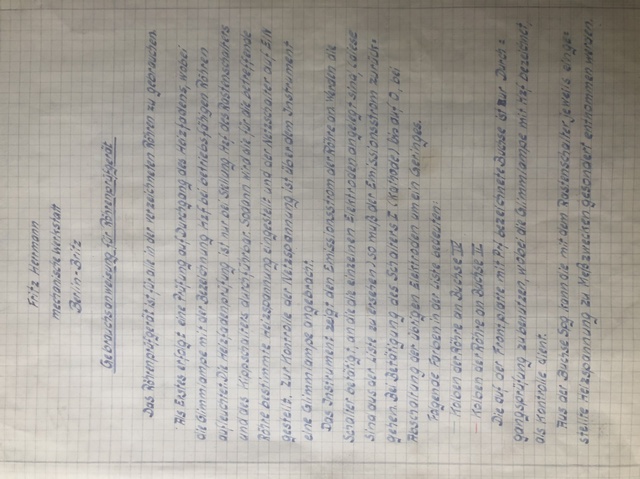 Fritz Hermann
mechanische Werkstatt
Berlin-Britz
Gebrauchsanweisung für Röhrenprüfgerät
Das Röhrenprüfgerät ist für all in der verzeichneten Röhren zu gebrauchen.
Als Erstes erfolgt eine Prüfung auf Durchgang des Heizfadens, wobei
die Glimmlampe mit der Bezeichnung Hzf bei betriebsfähigen Röhren
aufleuchtet. Die Heizfadenprüfung ist nur bei Stellung Hzf des Rastenschalters
und des Kippschalters durchführbar. Sodann wird die für die betreffende
Röhre bestimmte Heizspannung eingestellt und der Netzschalter auf Ein
gestellt. Zur Kontrolle der Netzspannung ist über dem Instrument
eine Glimmlampe angebracht.
Das Instrument zeigt den Emissionsstrom der Röhre an. Werden die
Schalter betätigt, an die die einzelnen Elektroden angelegt sind, (diese
sind aus der Liste zu ersehen) so muß der Emissionsstrom zurück-
gehen. Bei Betätigung des Schalters I (Kathode) bis auf 0, bei
Abschaltung der übrigen Elektroden um ein Geringes.
Folgende Farben in der Liste bedeuten:
— Kolben der Röhre an Buchse
— Kolben der Röhre an Buchse
Die auf der Frontplatte mit Prf bezeichnete Buchse ist zur Durch-
gangsprüfung zu benutzen, wobei die Glimmlampe mit Hzf bezeichnet,
als Kontrolle dient.
Aus der Buchse Spg kann die mit dem Rastenschalter jeweils einge-
stellte Heizspannung zu Meßzwecken gesondert entnommen werden.